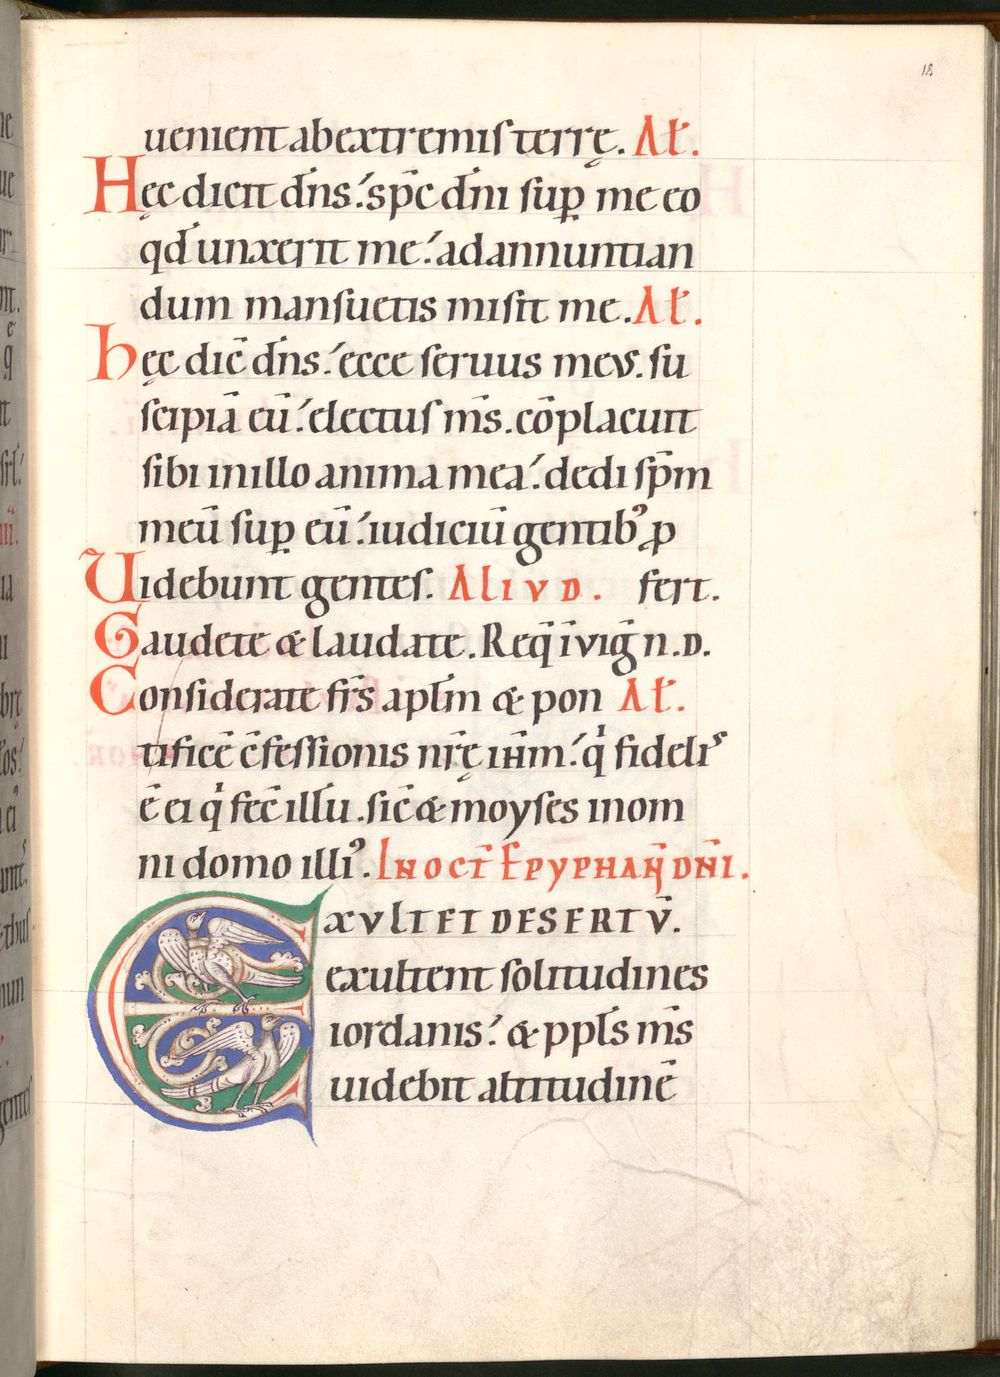 18
uenient ab extremis terrę. Al̃.
Hęc dicit dñs. sp̃c dñi sup me eo
qd̃ unxerit me. ad annuntian
dum mansuetis misit me. Al̃.
hęc dic̃ dñs. ecce seruus meus. su
scipiã eũ. electus ms̃. cõplacuit
sibi in illo anima mea. dedi sp̃m
meũ sup eũ. iudiciũ gentib; p
Uidebunt gentes. ALIUD. fert.
Gaudete & laudate. Req̃ ĩ uig̃ n. D.
Considerate frs̃ aplm̃ & pon Al̃.
tificẽ c̃fessionis nrę̃ ihm̃. q̇ fidelis
ẽ ei q̇ fec̃ illũ. sic̃ & moyses in om
ni domo illiꝰ. IN OCT̃ EPYPHAÑ DÑI.
EXULTET DESERTŨ.
exultent solitudines
iordanis. & ppls̃ ms̃
uidebit altitudinẽ